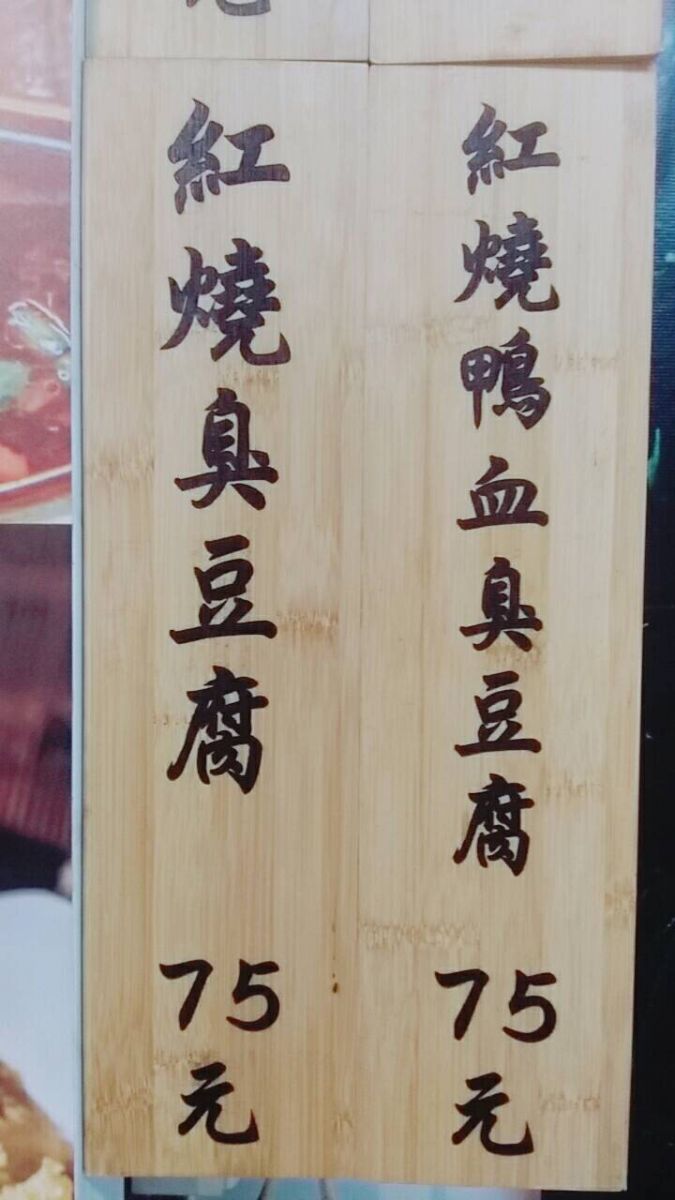 紅燒鴨血臭豆腐 75元
紅燒臭豆腐 75元